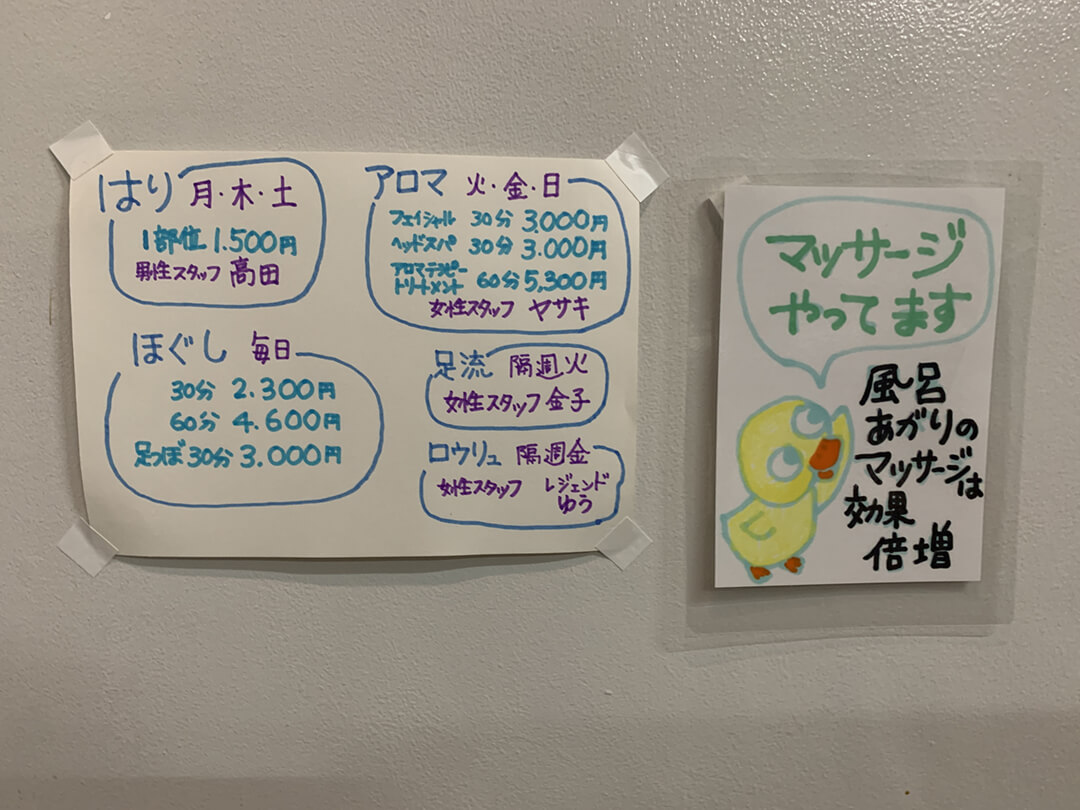 はり 月・木・土
1部位 1.500円
男性スタッフ 高田
ほぐし 毎日
30分 2.300円
60分 4.600円
足つぼ30分 3.000円
アロマ 火・金・日
フェイシャル 30分 3.000円
ヘッドスパ 30分 3.000円
アロマテラピー
トリートメント 60分 5,300円
女性スタッフ ヤサキ
足流 隔週火
女性スタッフ 金子
ロウリュ 隔週金
女性スタッフ レジェンド
ゆう
マッサージ
やってます
風呂
あがりの
マッサージは
効果
倍増